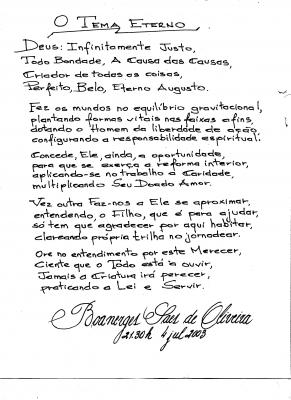 O TEMA ETERNO
Deus: Infinitamente Justo,
Todo Bondade, A Causa das Causas,
Criador de todas as coisas,
Perfeito, Belo, Eterno Augusto.
Faz os mundos no equilíbrio gravitacional,
plantando formas vitais nas faixas afins,
dotando o Homem da liberdade de ação,
configurando a responsabilidade espiritual.
Concede, Ele, ainda, a oportunidade,
para que se exerça a reforma interior,
aplicando-se no trabalho a Caridade,
multiplicando Seu Doado Amor.
Vez outra Faz-nos a Ele se aproximar,
entendendo, o Filho, que é para ajudar,
só tem que agradecer por aqui habitar,
clareando própria trilha no jornadear.
Ore no entendimento por este Merecer,
Ciente que o Todo está a ouvir,
Jamais a Criatura irá perecer,
praticando a Lei e Servir.
Boanerges Saes de Oliveira
21:30h 4 jul 2003